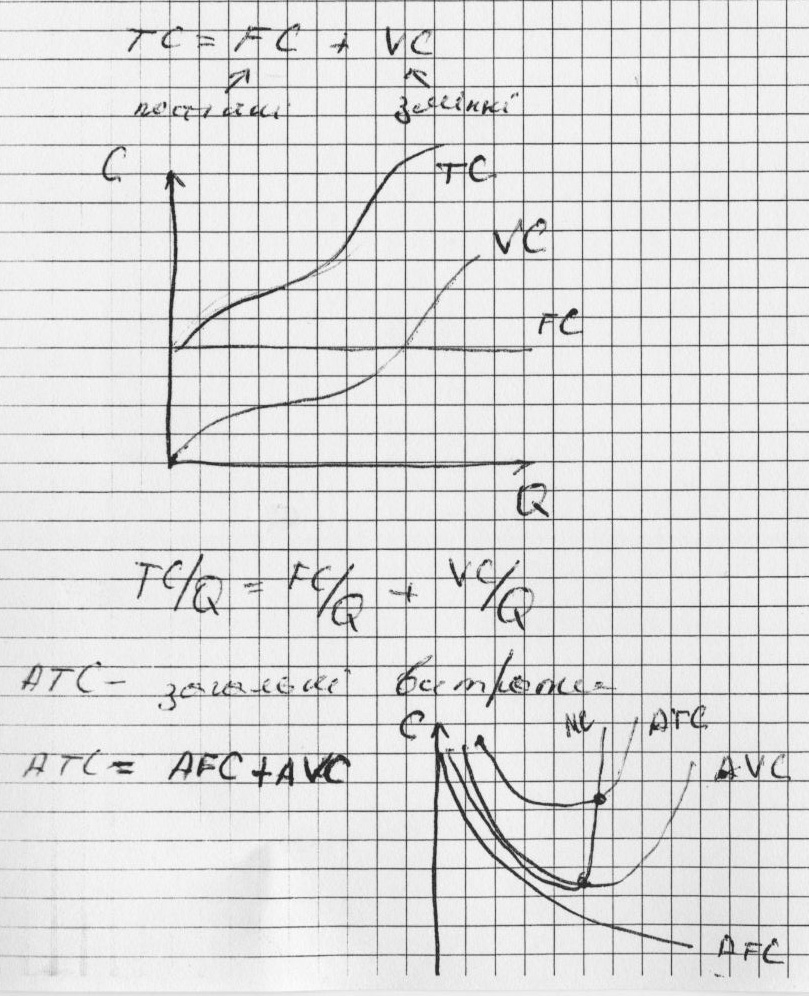 TC = FC + VC
постійні змінні
C
TC
VC
FC
Q
TC/Q = FC/Q + VC/Q
ATC - загальні витрати
C MC ATC
ATC = AFC + AVC AVC
AFC